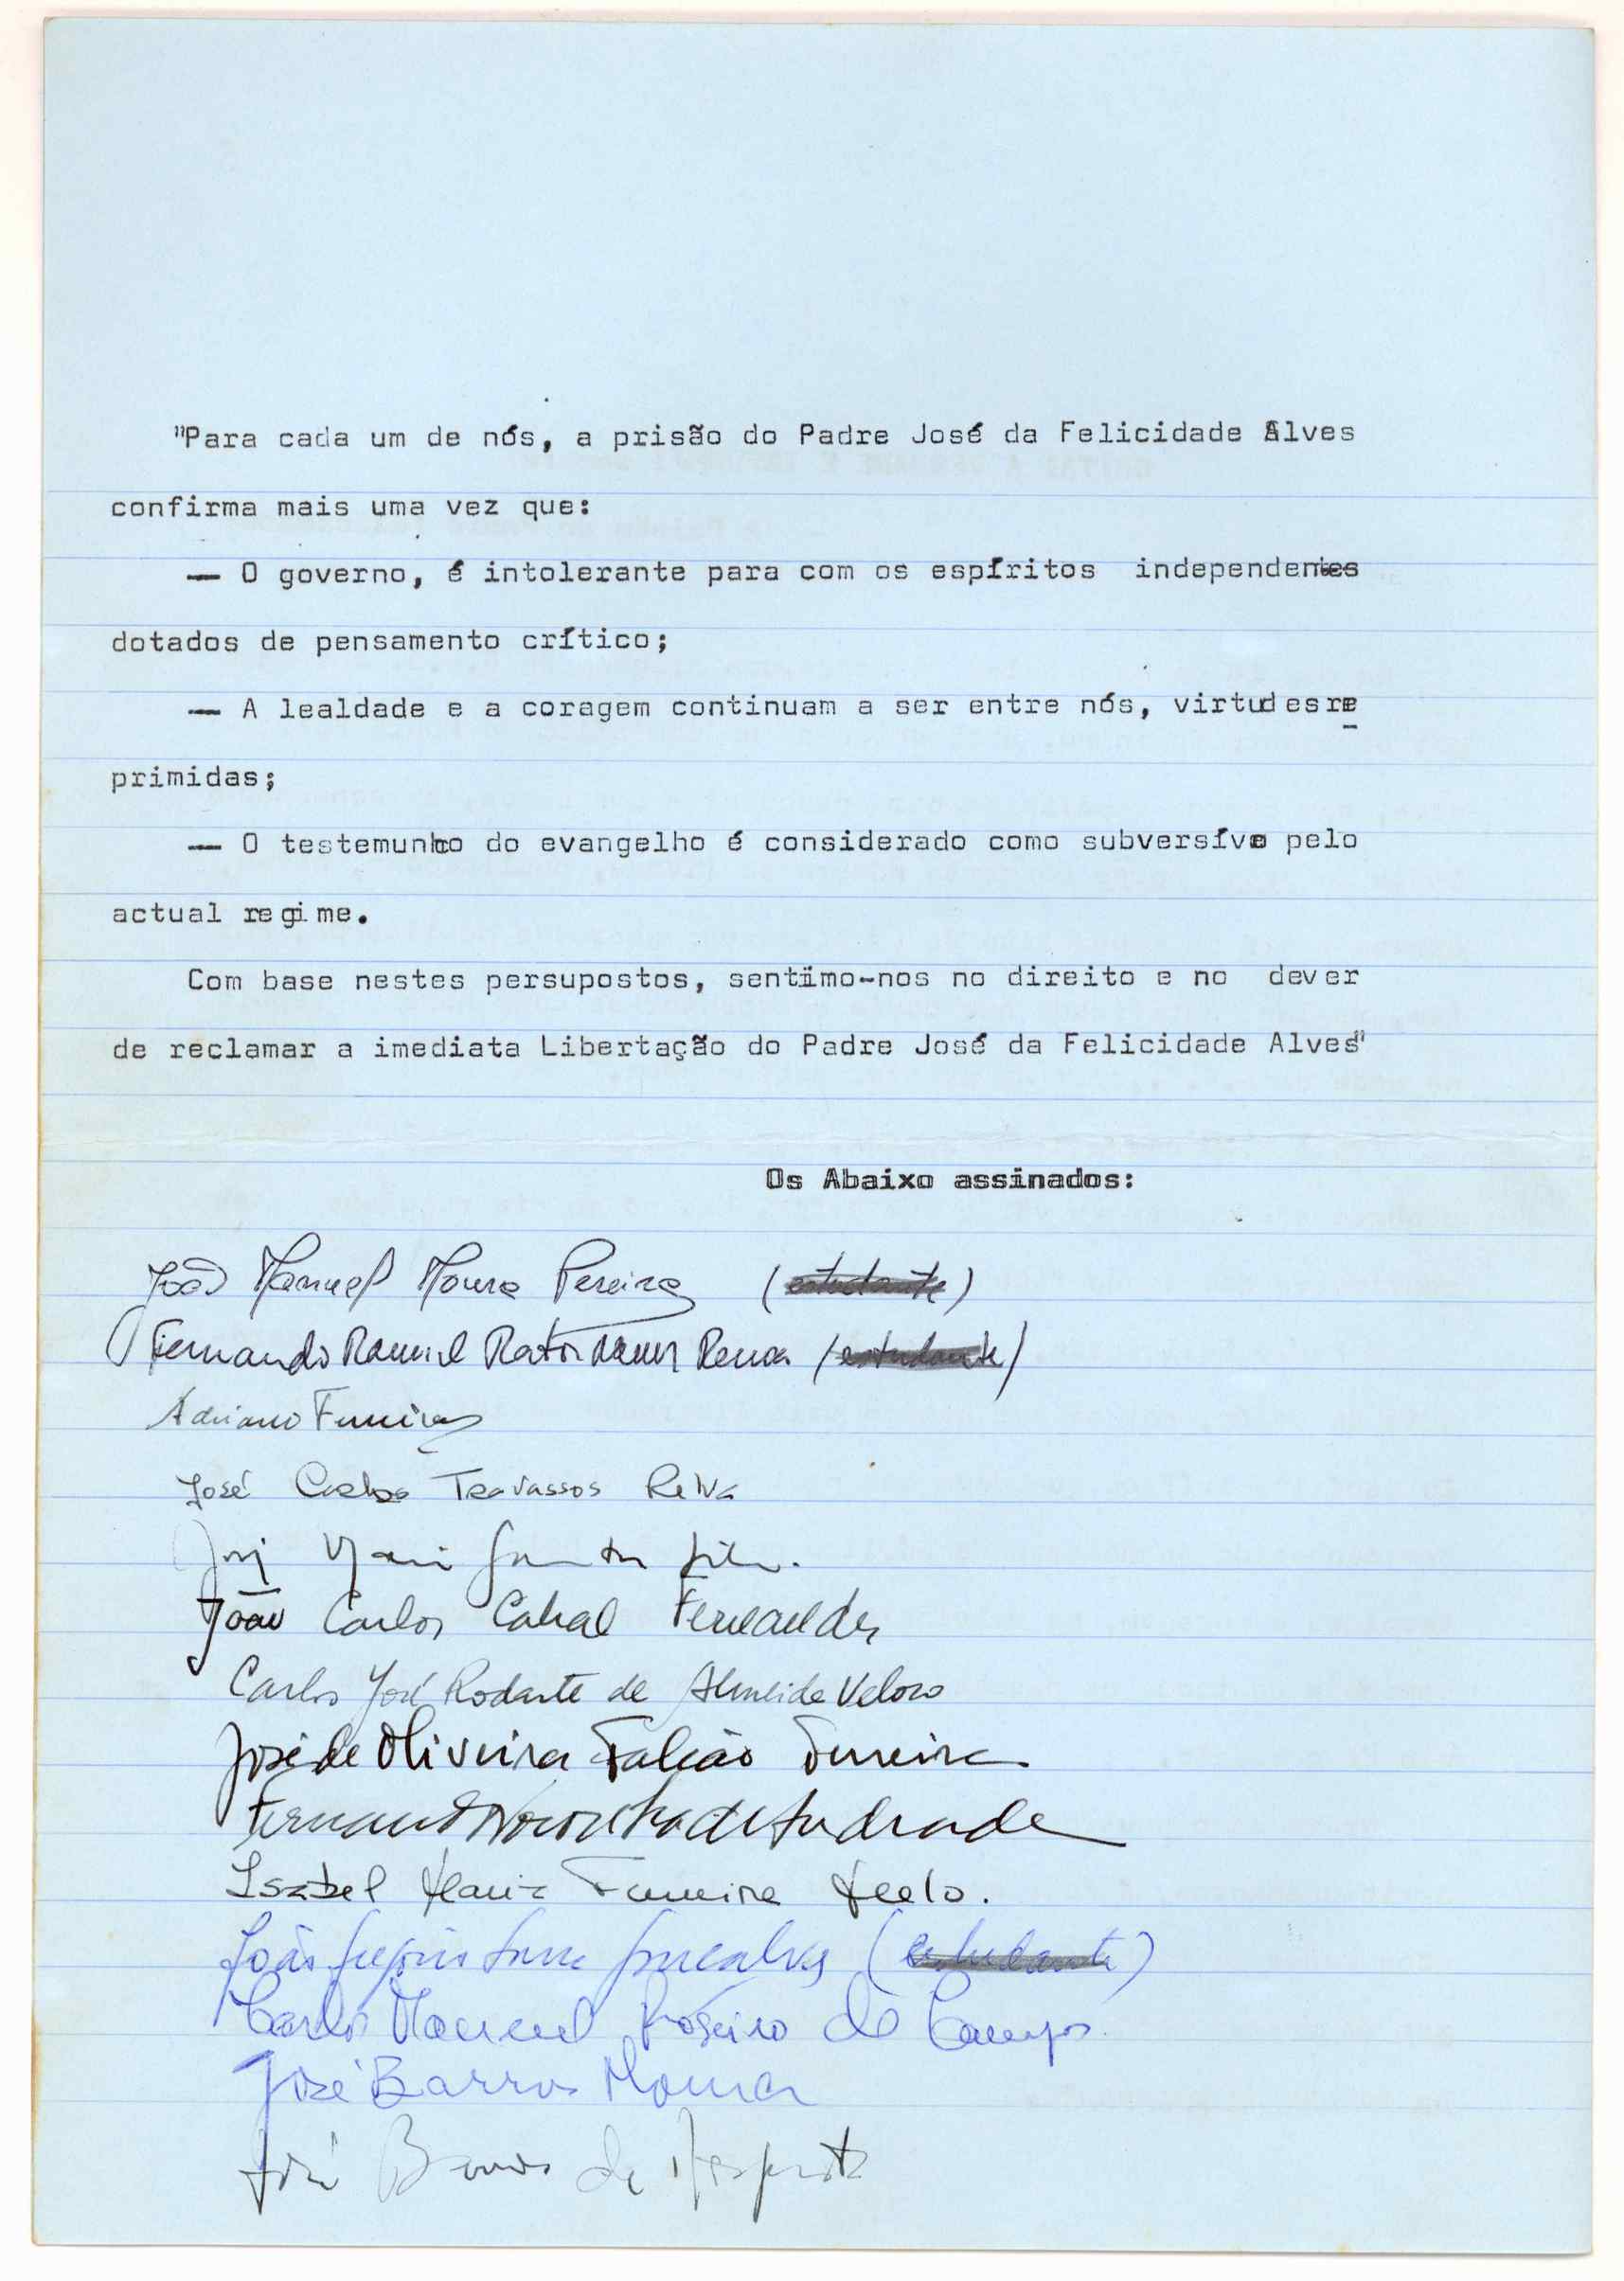 "Para cada um de nós, a prisão do Padre José da Felicidade Alves
confirma mais uma vez que:
— O governo, é intolerante para com os espíritos independentes
dotados de pensamento crítico;
— A lealdade e a coragem continuam a ser entre nós, virtudesre
primidas;
— O testemunho do evangelho é considerado como subversívo pelo
actual regime.
Com base nestes persupostos, sentimo-nos no direito e no dever
de reclamar a imediata Libertação do Padre José da Felicidade Alves"
Os Abaixo assinados:
João Manuel Moura Pereira (estudante)
Fernando Manuel (estudante)
Adriano Ferreira
José Carlos Travassos Relva
João Carlos Cabral Fernandes
Carlos José Rodarte de Almeida Veloso
José de Oliveira Falcão Ferreira
Fernando Noronha de Andrade
Isabel Maria Ferreira Melo.
João Gonçalves (estudante)
Carlos Manuel de Campos
José Barros Moura
José de